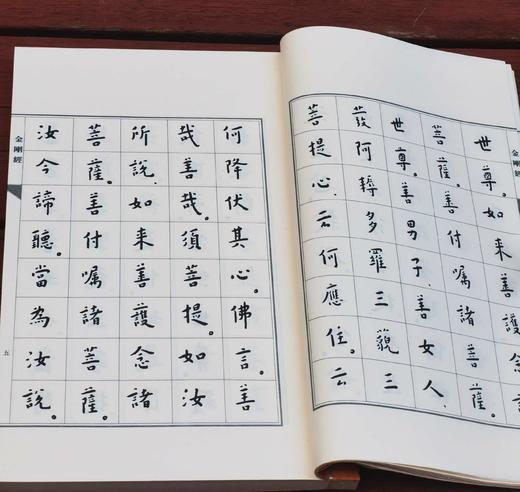 金剛經
世尊。如来善護念諸
菩薩。善付嘱諸菩薩。
世尊。善男子。善女人
發阿耨多羅三藐三
菩提心。云何應住。云
何降伏其心。佛言。善
哉善哉。須菩提。如汝
所說。如来善護念諸
菩薩。善付嘱諸菩薩。
汝今諦聽。當為汝說。
金剛經
五